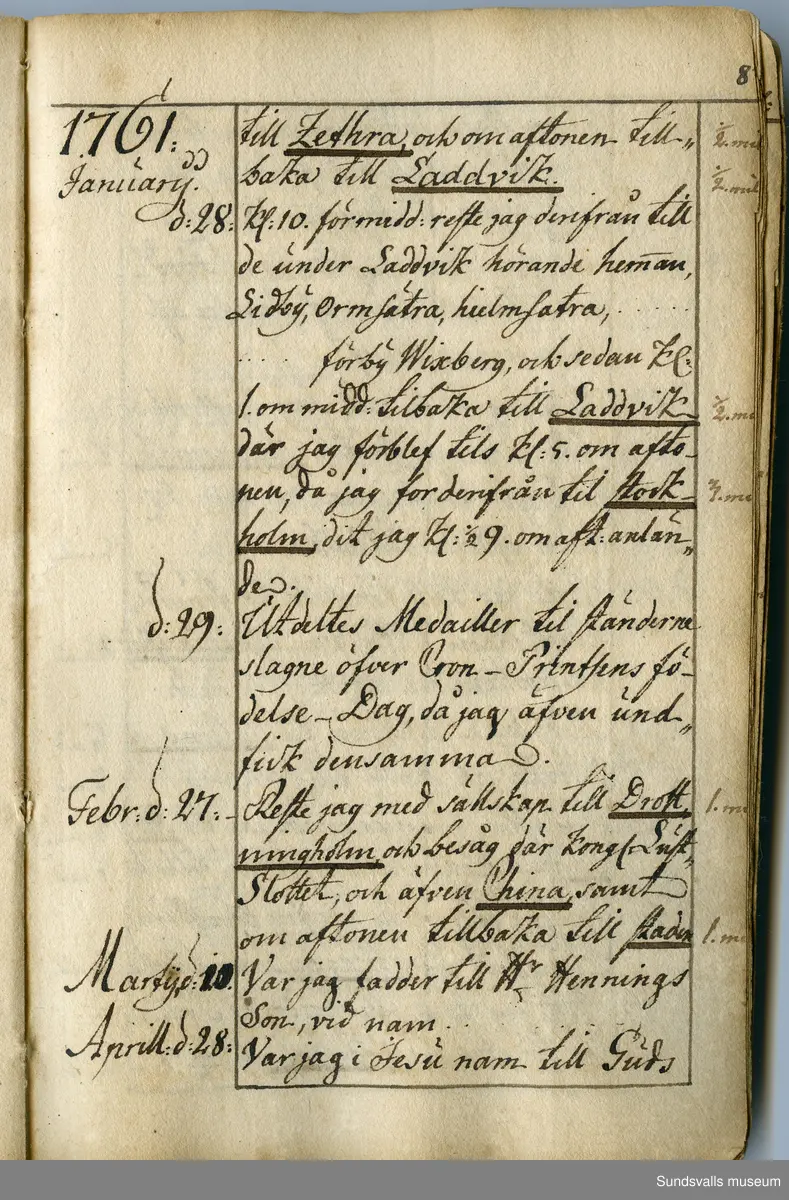 8
1761. till Zethra, och om aftonen till„ ½. mil
Januarÿ. baka till Laddvik. ½. mil
d: 28: Kl: 10. förmidd: reste jag derifrån till
de under Laddvik hörande hem̅an,
Lidbÿ, Ormsätra, hielmsatra, . . . . .
. . . . förbÿ Wixberg, och sedan Kl:
1. om midd: tilbaka till Laddvik ½. mi
där jag förblef tils Kl: 5. om afto-
nen, då jag for derifrån til Stock- mi
holm, dit jag Kl: ½ 9. om aft: anlän„
de.
d: 29: Utdeltes Medailler til Ständerne
slagne öfver Cron-Printsens fö-
delse-Dag, då jag äfven und„
fick densamma.
Febr: d: 27. Reste jag med sällskap till Drott, 1. mi
ningholm, och besåg där Kongl. Lust,
Slottet, och äfven China, samt
om aftonen tillbaka till Staden 1. mi
Martÿ d: 10. Var jag fadder till Hr Hennings
Son, vid nam. . . . .
Aprill: d: 28: Var jag i Jesu nam till Guds
Sundsvalls museum